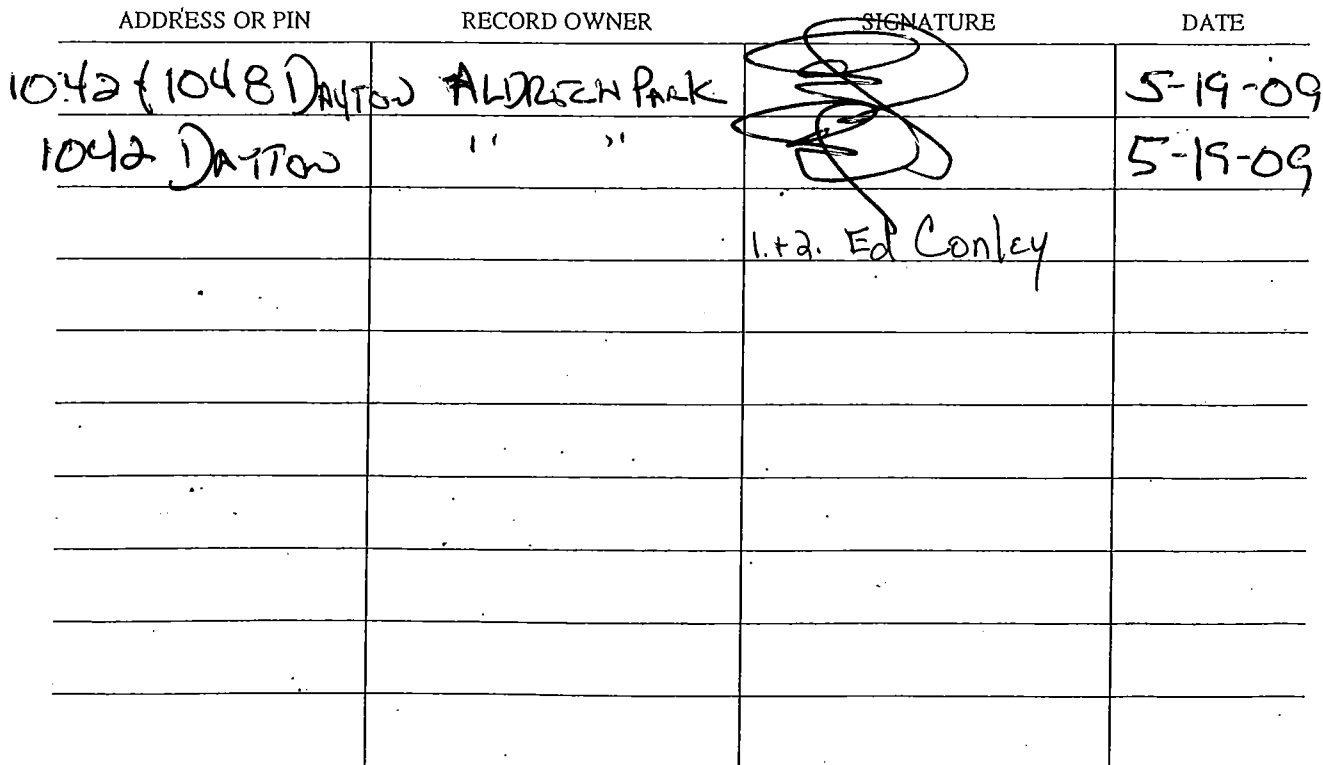 ADDRESS OR PIN RECORD OWNER SIGNATURE DATE
1042 & 1048 DAYTON ALDRICH PARK 5-19-09
1042 DAYTON " " 5-19-09
1.+2. Ed Conley